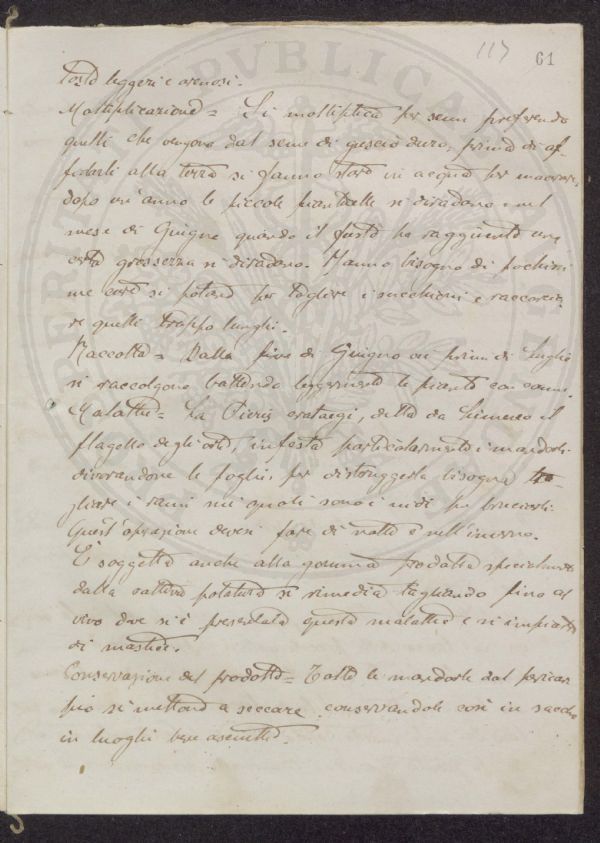 117 61
tosto leggeri e arenosi.
Moltiplicazione = Si moltiplica per seme preferendo
quelli che vengono dal seme di guscio duro, prima di af-
fidarli alla terra si fanno stare in acqua per macerare,
dopo un'anno le piccole pianticelle si diradano e nel
mese di Giugno quando il fusto ha raggiunto una
certa grossezza si diradano. Hanno bisogno di pochissi
me cure si potano per togliere i succhioni e raccorcia
re quelli troppo lunghi.
Raccolta = Dalla fine di Giugno ai primi di Luglio
si raccolgono battendo leggermente le piante con canne.
Malattie = La Pieris crataegi, detta da Linneo il
flagello degli orti, infesta particolarmente i mandorli
divorandone le foglie, per distruggerla bisogna ta-
gliare i rami nei quali sono i nidi per bruciarli.
Quest'operazione devesi fare di notte e nell'inverno.
E' soggetto anche alla gomma prodotta specialmente
dalla cattiva potatura si rimedia tagliando fino al
vivo dove si è presentata questa malattia e si impiastra
di mastice.
Conservazione del prodotto = Tolte le mandorle dal pericar
pio si mettono a seccare conservandole così in sacchi
in luoghi bene asciutti.
PVBLICA